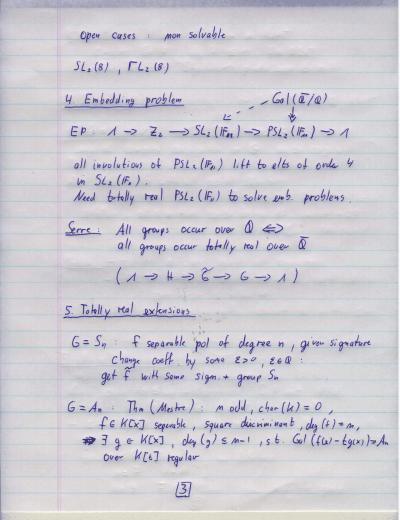 Open cases : non solvable
SL₂(8) , ΓL₂(8)
4 Embedding problem
Gal(Q̅/Q)
EP: 1 → Z₂ → SL₂(𝔽₁₁) → PSL₂(𝔽₁₁) → 1
all involutions of PSL₂(𝔽₁₁) lift to elts of order 4
in SL₂(𝔽₁₁).
Need totally real PSL₂(𝔽₁₁) to solve emb. problems.
Serre : All groups occur over Q ⇔
all groups occur totally real over Q̅
( 1 → H → G̃ → G → 1 )
5. Totally real extensions
G = Sₙ : f separable pol of degree n, given signature
Change coeff. by some ε>0, ε∈Q :
get f̃ with same sign. + group Sₙ
G = Aₙ : Thm (Mestre) : n odd, char(K) = 0,
f ∈ K[x] separable, square discriminant, deg(f) = n,
⇒ ∃ g ∈ K[x], deg(g) ≤ n-1, s.t. Gal(f(x) - tg(x)) = Aₙ
over K[t] regular
3